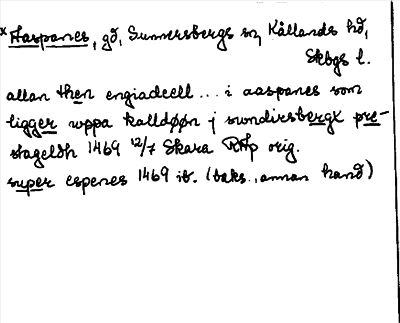 x Haspanes, gd, Sunnersbergs sn, Kållands hd,
Skbgs l.
allan then engiadeell ... i aaspanes som
ligger uppa kalldøøn j swndirsbergx pre-
stageldh 1469 12/7 Skara RAp orig.
super espenes 1469 ib. (baks., annan hand)